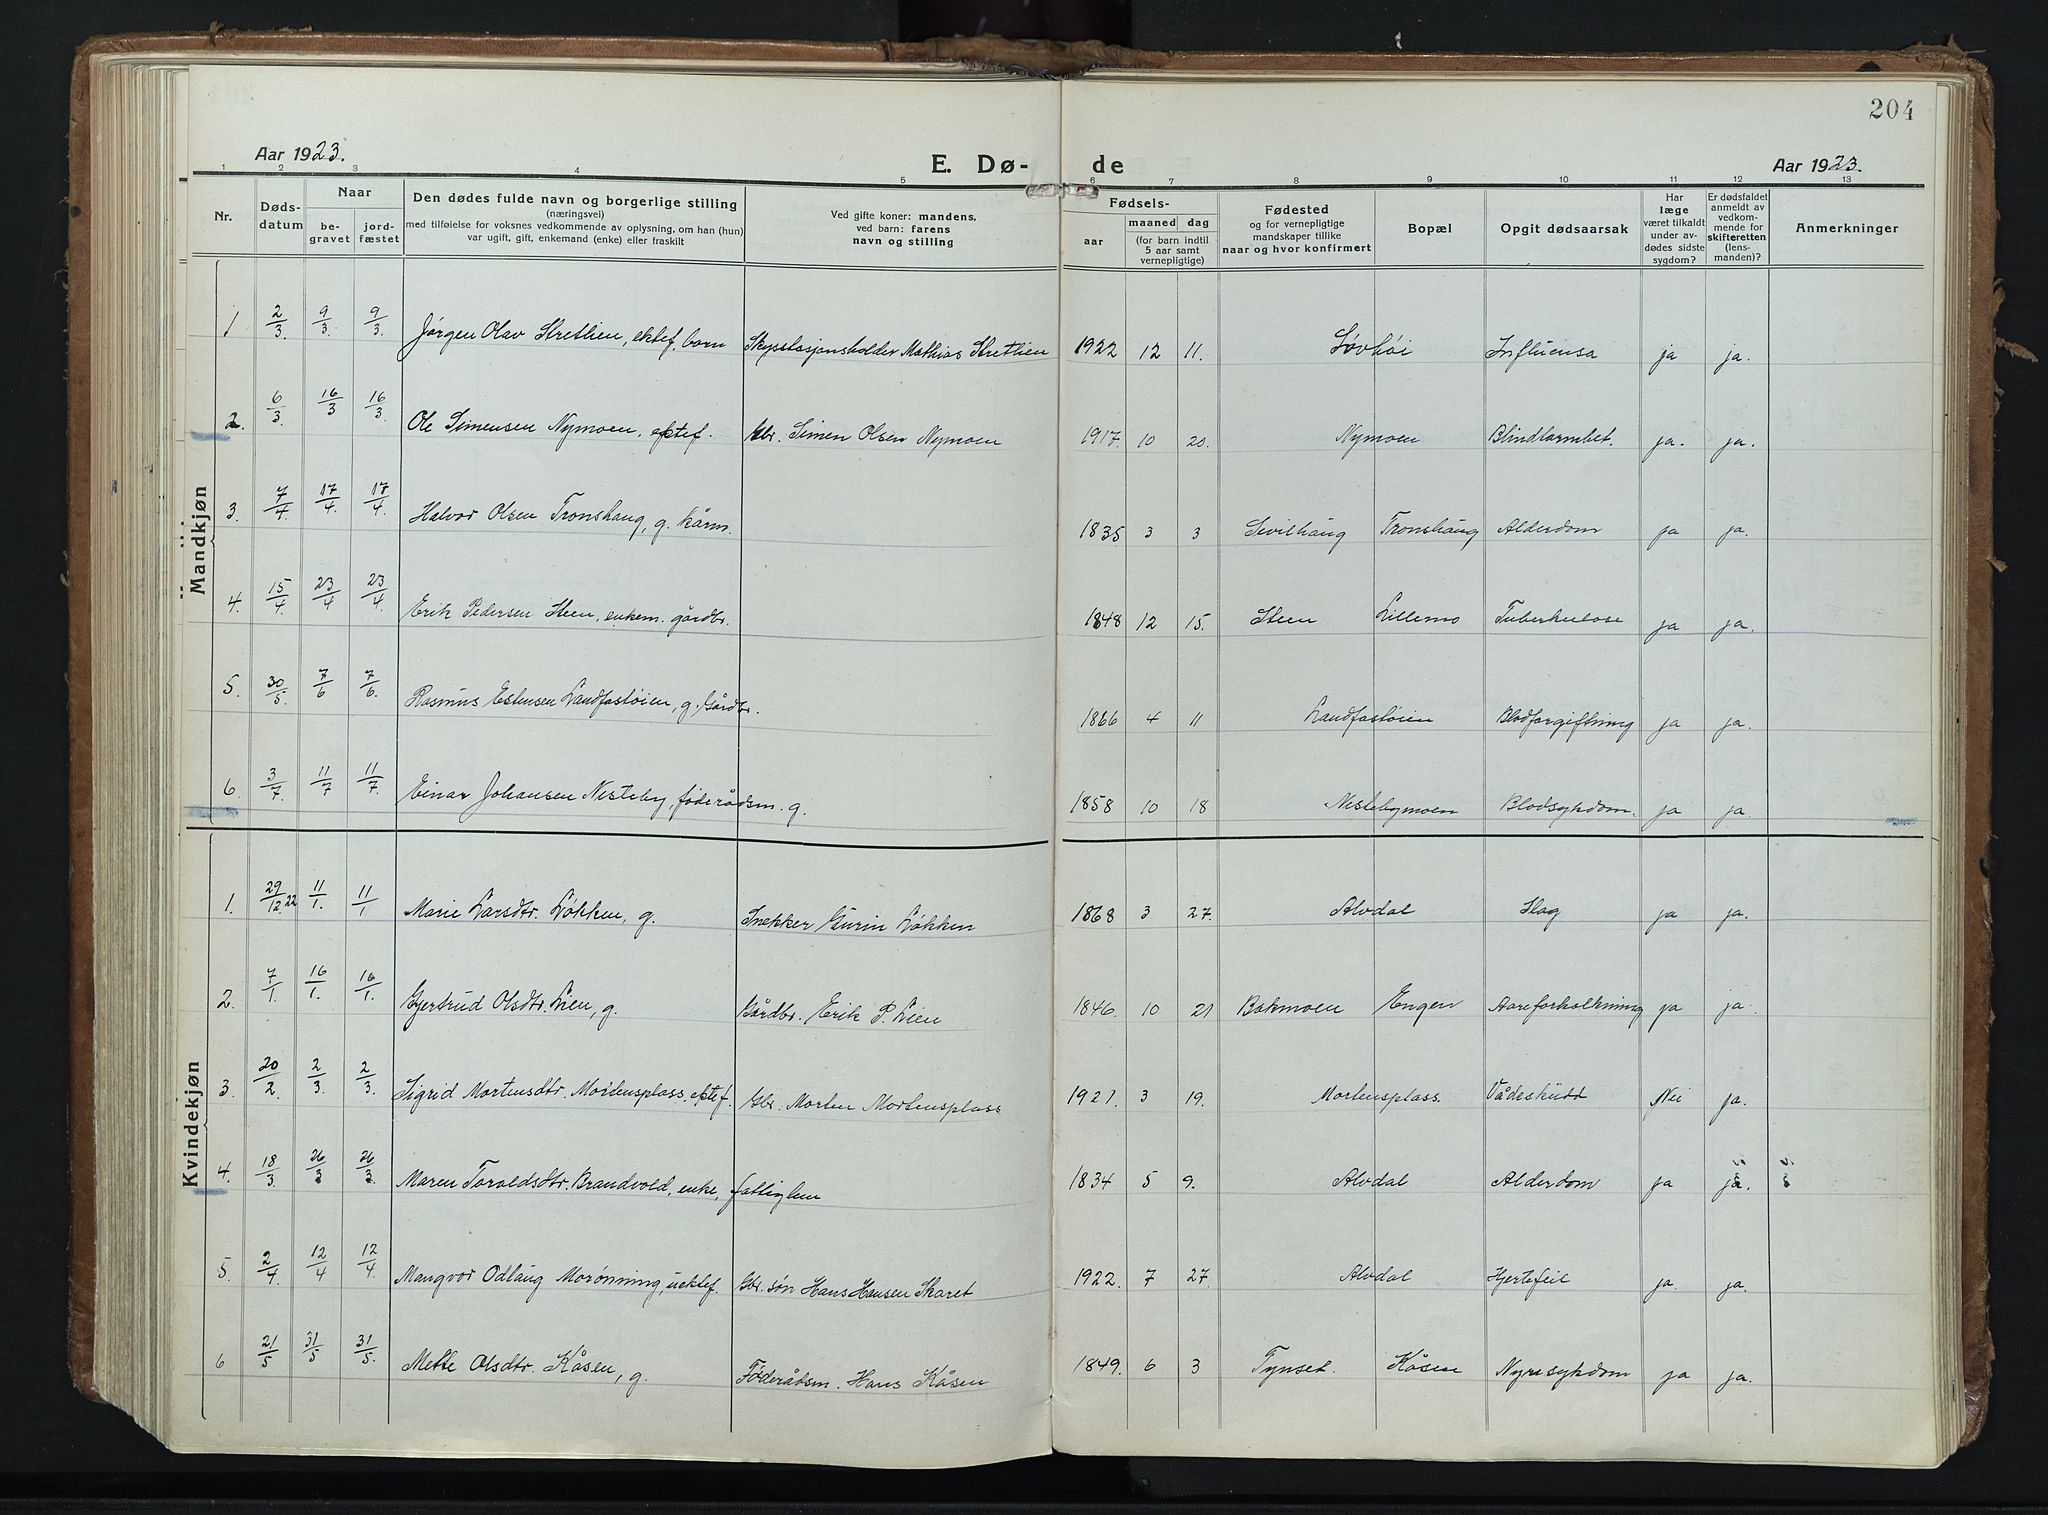 204
Aar 1923.
E. Dø-
de
Aar 1923.
1 2 3 4 5 6 7 8 9 10 11 12 13
Nr.
Døds-
datum
Naar
be-
gravet
jord-
fæstet
Den dødes fulde navn og borgerlige stilling
(næringsvei)
med tilføielse for voksnes vedkommende av oplysning, om han (hun)
var ugift, gift, enkemand (enke) eller fraskilt
Ved gifte koner: mandens,
ved barn: farens
navn og stilling
Fødsels-
aar
maaned
dag
(for barn indtil
5 aar samt
vernepligtige)
Fødested
og for vernepligtige
mandskaper tillike
naar og hvor konfirmert
Bopæl
Opgit dødsaarsak
Har
læge
været tilkaldt
under av-
dødes sidste
sygdom?
Er dødsfaldet
anmeldt av
vedkom-
mende for
skifteretten
(lens-
manden)?
Anmerkninger
Mandkjøn
1 2/3 9/3. 9/3. Jørgen Olav Stretlien, ektef. barn Skysstasjonsholder Mathias Stretlien 1922 12 11. Søvhøi Influensa ja ja.
2. 6/3. 16/3 16/3 Ole Simensen Nymoen, ektef. Gbr. Simen Olsen Nymoen 1917. 10 20. Nymoen Blindtarmbet. ja. ja.
3. 7/4. 17/4. 17/4. Halvor Olsen Tronshaug, g. kårm. 1835 3 3 Sevilhaug Tronshaug Alderdom ja ja.
4. 15/4. 23/4 23/4. Erik Pedersen Steen, enkem. gårdbr. 1848 12 15. Steen Lillemo Tuberkulose ja ja.
5. 30/5. 7/6 7/6. Rasmus Estensen Landfastøien, g. Gårdbr. 1866 4 11 Landfastøien Blodforgiftning ja ja
6. 3/7. 11/7 11/7. Einar Johansen Nesteby, føderådsm. g. 1858 10 18 Nestebymoen Blodsykdom. ja ja.
Kvindekjøn
1. 29/12.22 11/1. 11/1 Marie Larsdtr. Løkken, g. Snekker Gurin Løkken 1868 3 27. Alvdal Slag ja ja.
2. 7/1. 16/1. 16/1. Gjertrud Olsdtr. Lien, g. Gårdbr. Erik P. Lien 1846. 10 21 Bakmoen Engen Aareforkalkning ja ja.
3. 20/2. 2/3. 2/3. Sigrid Mortensdtr. Mortensplass. ektef. Gbr. Morten Mortensplass 1921. 3 19. Mortensplass. Vådeskudd Nei ja.
4. 18/3. 26/3 26/3. Maren Toraldsdtr. Brandvold, enke, fattiglem 1834 5 9. Alvdal Alderdom ja ja.
5. 2/4. 12/4 12/4. Mangvor Odlaug Morønning, uektef. Gbr. søn Hans Hansen Skaret 1922. 7 27. Alvdal Hjertefeil ja. ja.
6 21/5 31/5 31/5. Mette Olsdtr. Kåsen, g. Føderådsm. Hans Kåsen 1849. 6 3 Tynset. Kåsen Nyresykdom ja ja.